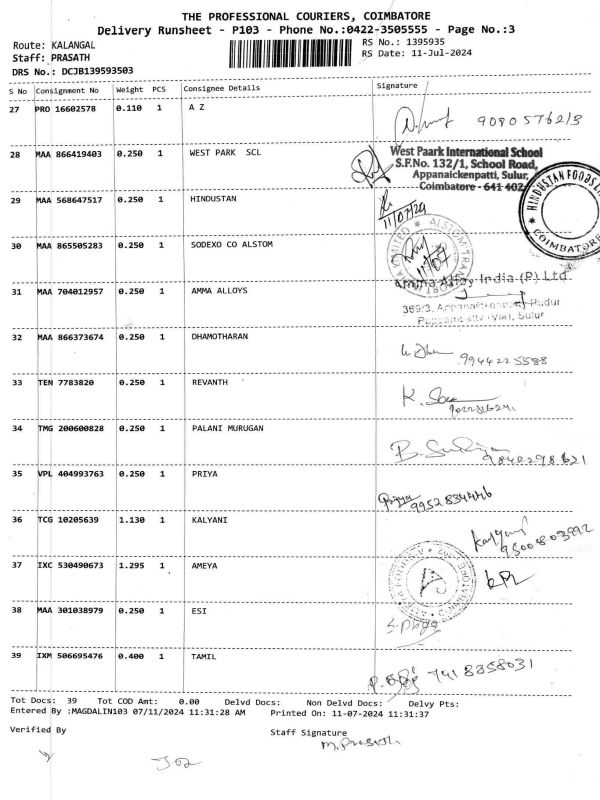 THE PROFESSIONAL COURIERS, COIMBATORE
Delivery Runsheet - P103 - Phone No.:0422-3505555 - Page No.:3
Route: KALANGAL RS No.: 1395935
Staff: PRASATH RS Date: 11-Jul-2024
DRS No.: DCJB139593503
S No Consignment No Weight PCS Consignee Details Signature
27 PRO 16602578 0.110 1 A Z
28 MAA 866419403 0.250 1 WEST PARK SCL
West Paark International School
S.F.No. 132/1, School Road,
Appanaickenpatti, Sulur,
Coimbatore - 641 402
29 MAA 568647517 0.250 1 HINDUSTAN 11/07/24
HINDUSTAN FOODS
COIMBATORE
30 MAA 865505283 0.250 1 SODEXO CO ALSTOM 11/07
31 MAA 704012957 0.250 1 AMMA ALLOYS
Amma Alloy India (P) Ltd
369/3, Appanaickenpatti Pudur
Sulur
32 MAA 866373674 0.250 1 DHAMOTHARAN 9944225588
33 TEN 7783820 0.250 1 REVANTH
34 TMG 200600828 0.250 1 PALANI MURUGAN
9842298621
35 VPL 404993763 0.250 1 PRIYA
Priya 9952834446
36 TCG 10205639 1.130 1 KALYANI
Kalyani
9500803992
37 IXC 530490673 1.295 1 AMEYA
38 MAA 301038979 0.250 1 ESI
39 IXM 506695476 0.400 1 TAMIL 7418358031
Tot Docs: 39 Tot COD Amt: 0.00 Delvd Docs: Non Delvd Docs: Delvy Pts:
Entered By :MAGDALIN103 07/11/2024 11:31:28 AM Printed On: 11-07-2024 11:31:37
Verified By Staff Signature
M.Prasath